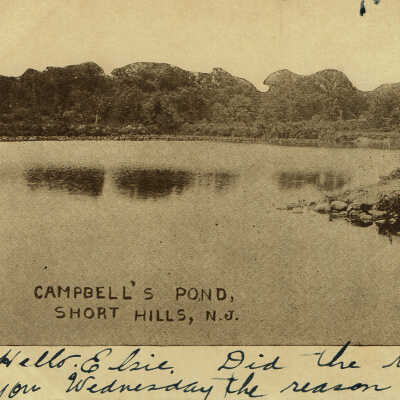 CAMPBELL'S POND,
SHORT HILLS, N.J.
Hello Elsie. Did the
you Wednesday the reason